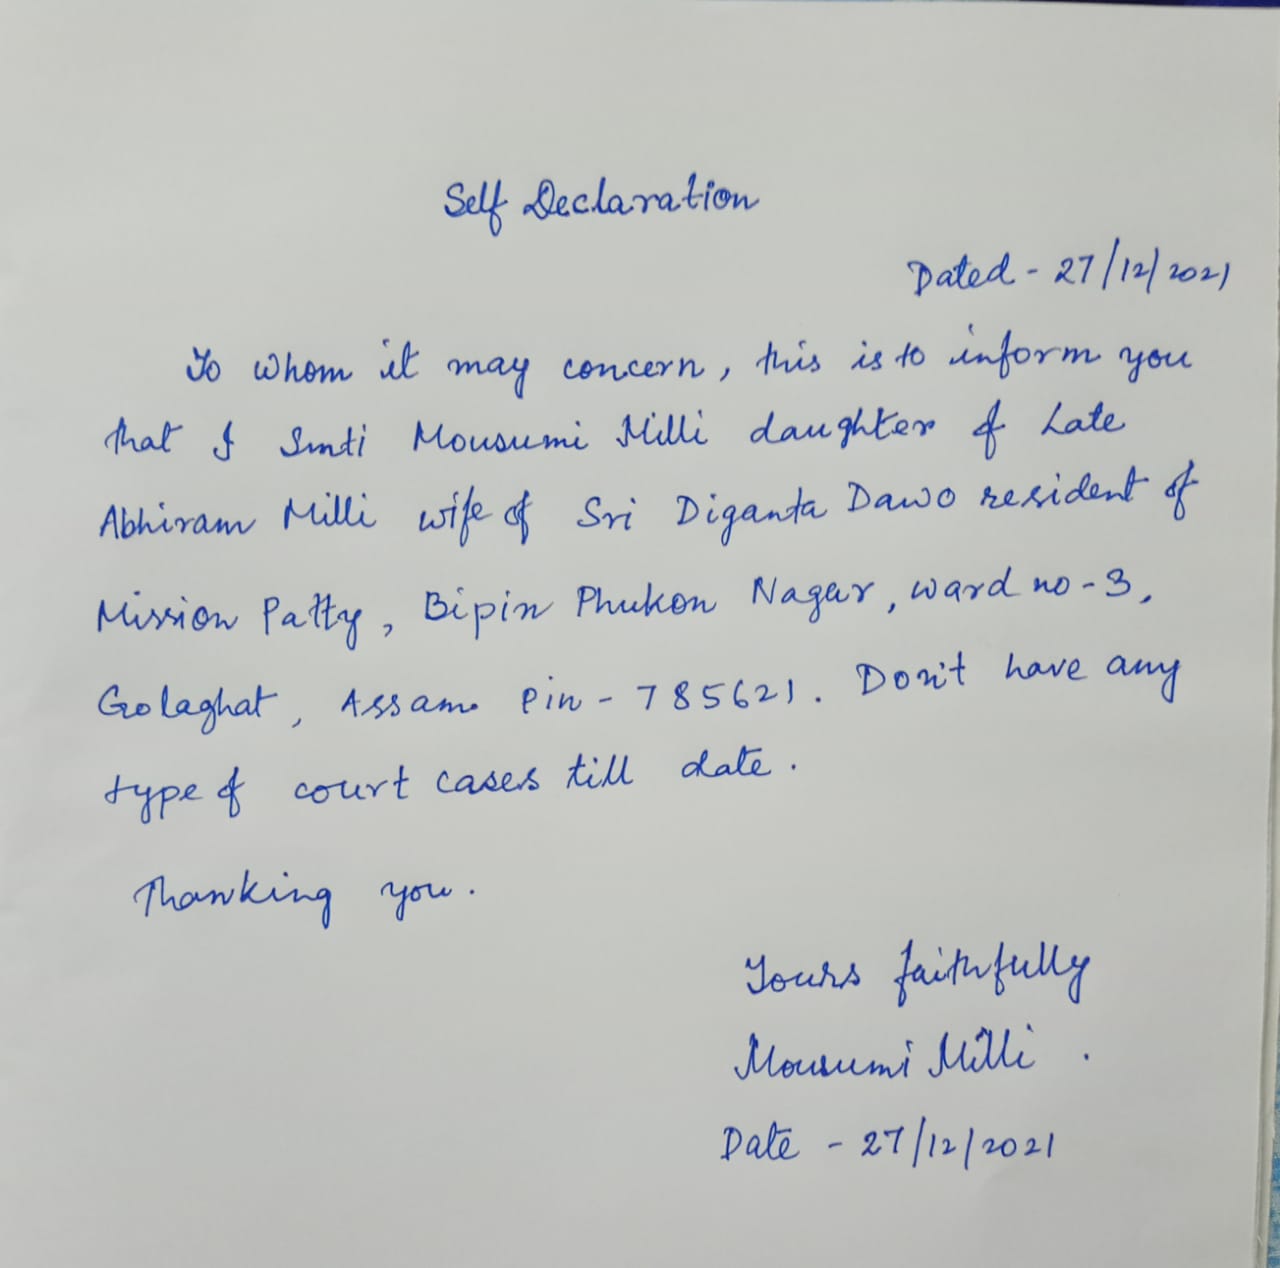 Self Declaration
Dated - 27/12/2021
To whom it may concern, this is to inform you
that I Smti Mousumi Milli daughter of Late
Abhiram Milli wife of Sri Diganta Dawo resident of
Mission Patty, Bipin Phukon Nagar, ward no - 3,
Golaghat, Assam. Pin - 785621. Don't have any
type of court cases till date.
Thanking you.
Yours faithfully
Mousumi Milli.
Date - 27/12/2021